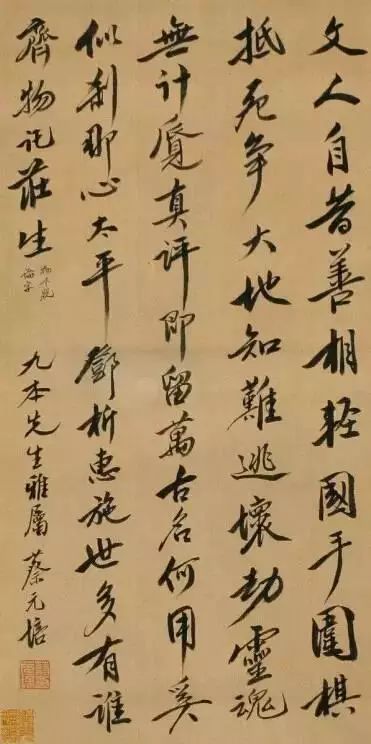 文人自昔善相輕國手圍棋
抵死爭大地知難逃壞劫靈魂
無計覓真評即留萬古名何用奚
似剎那心太平鄧析惠施世多有誰
齊物託莊生
物下脫
論字
九本先生雅屬 蔡元培